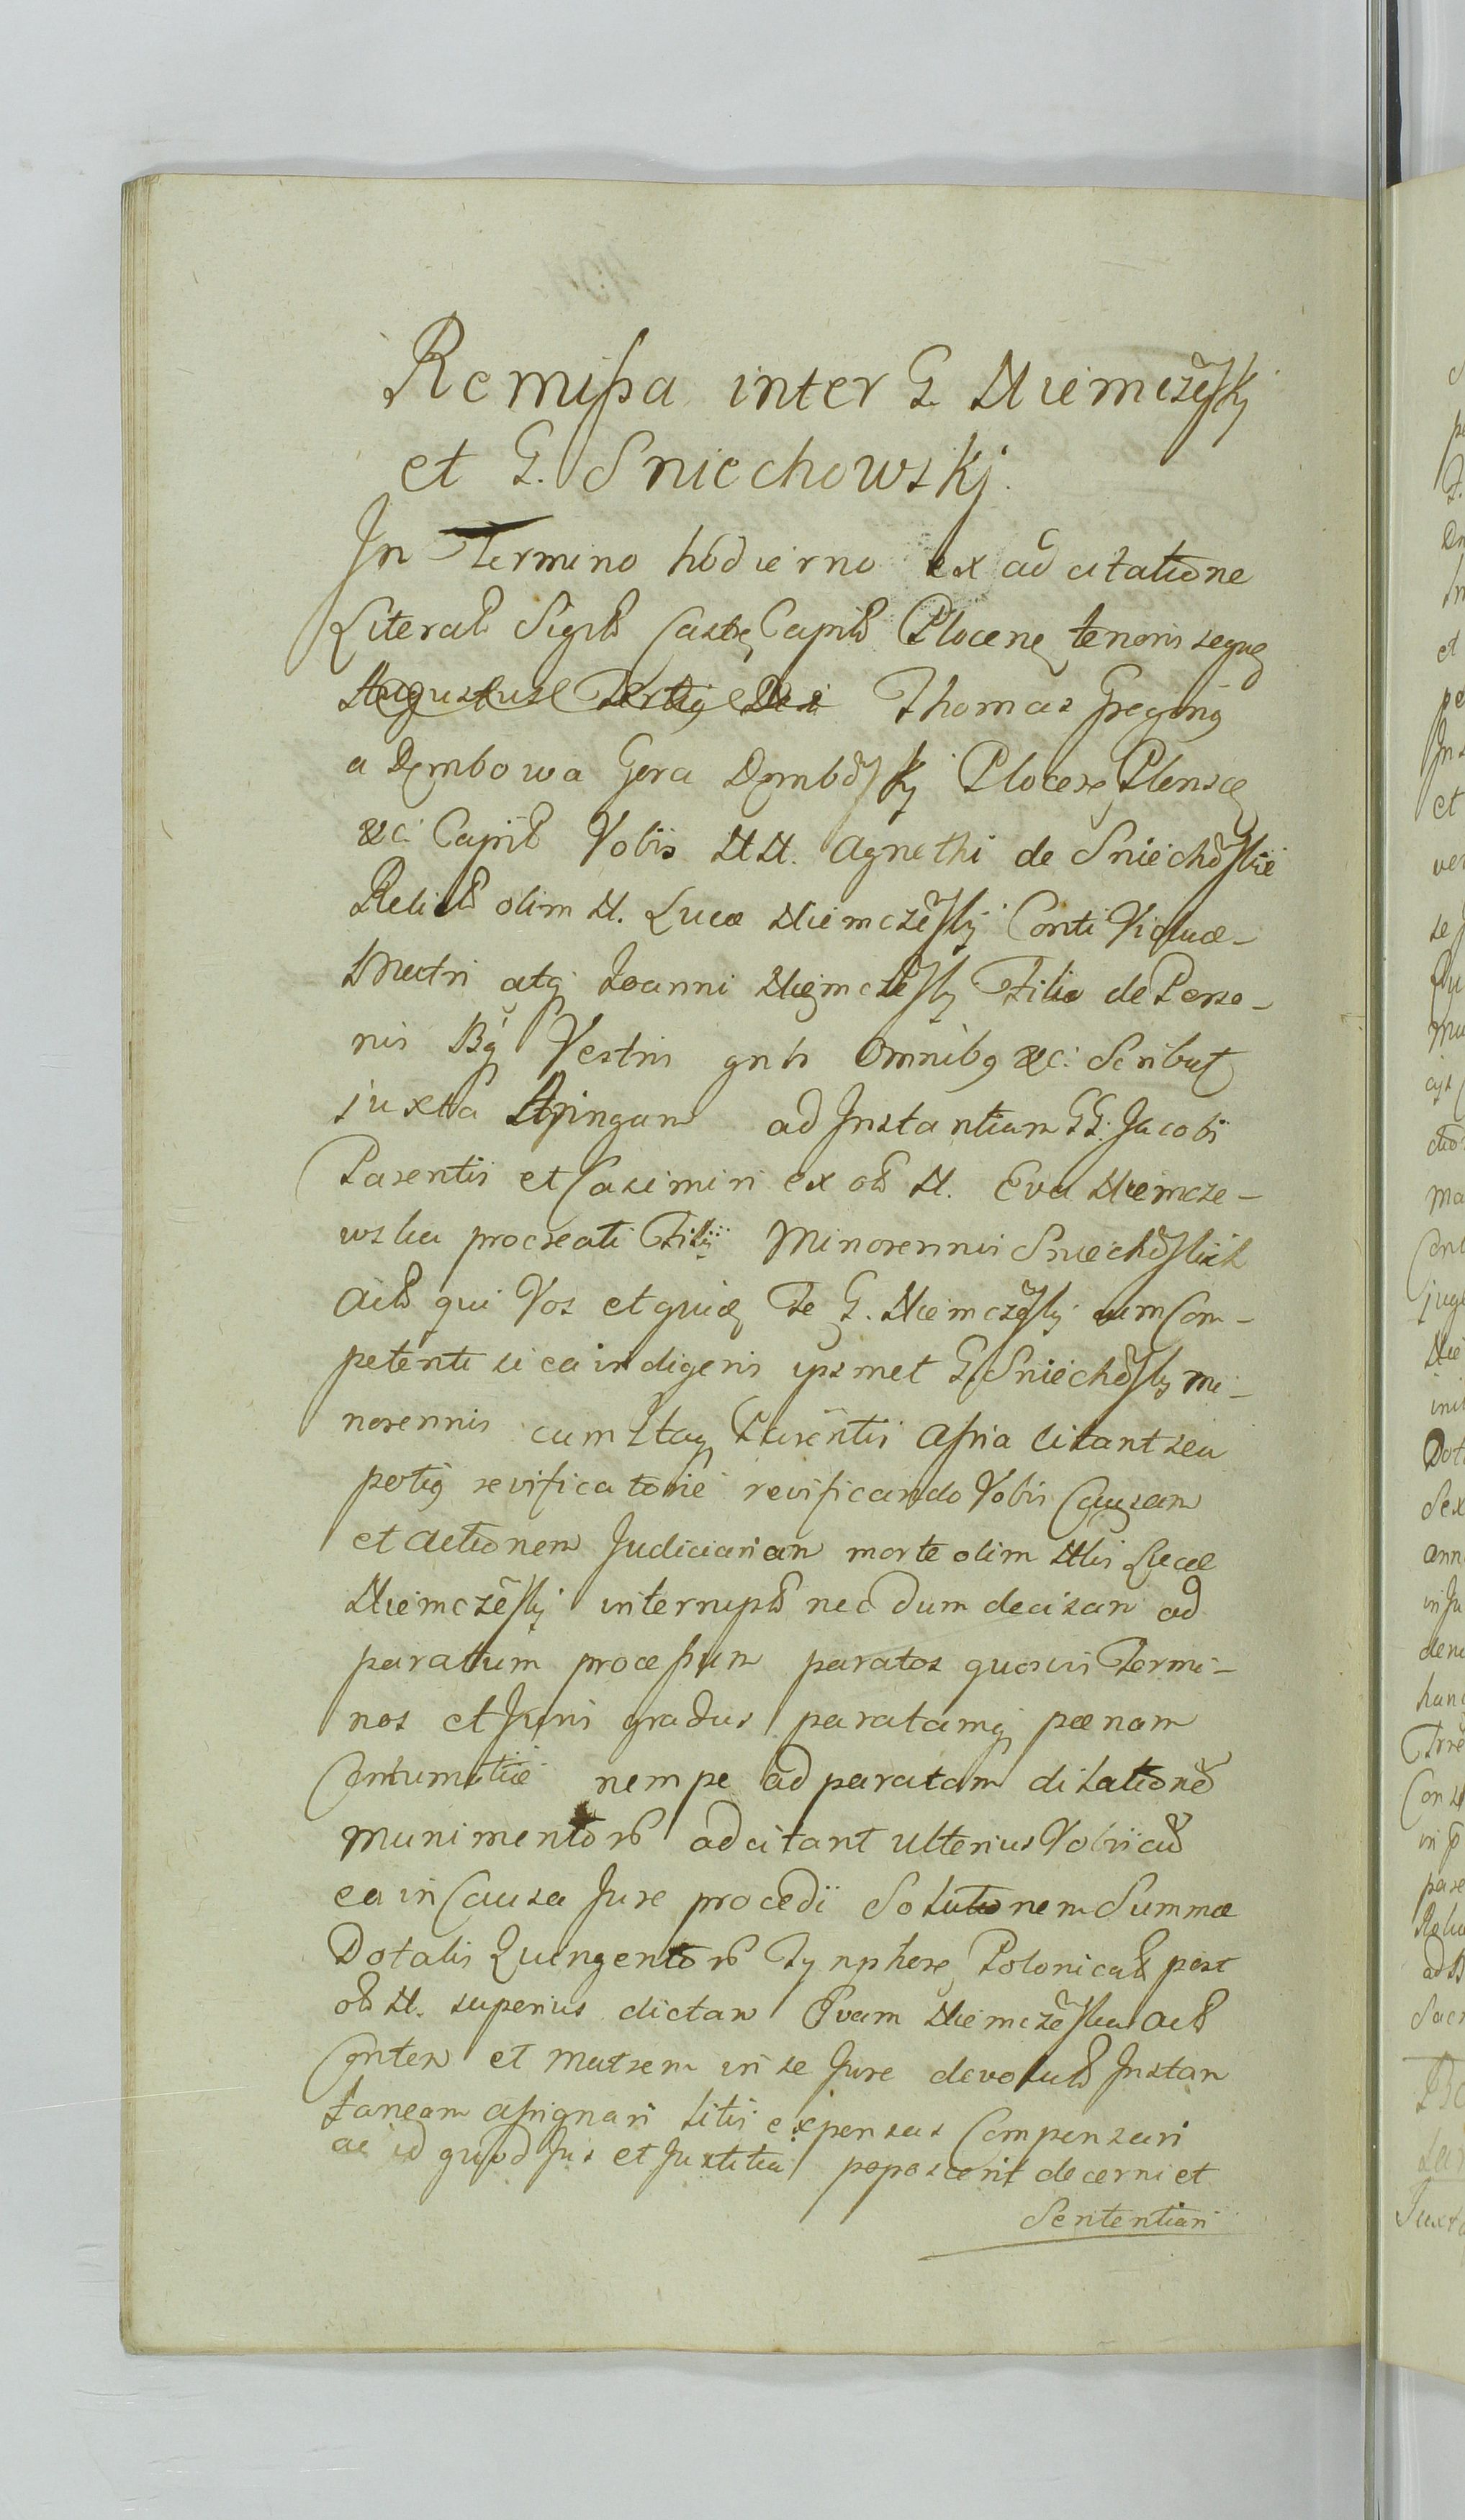 Remissa inter G. Niemczewskj
et G. Sniechowskj.
In Termino hodierno ex adcitatione
Literalr Sigilr Castrę Capitlr Plocenę tenoris sequę
Augustus Tertig Dei Thomas Gregorig
a Dęmbowa Gora Dęmbowskj Ploceń Plensę
&c: Capitlr Vobis NN. Agnethi de Sniechowskie
Relictr olim N. Lucæ Niemczewskj Conti Viduæ-
Matri atq Joanni Niemczewskj Filio de Perso-
nis Bq Vestris gnlr Omnibg &c: Scribut
juxta Apingam ad Instantiam GG. Jacobi
Parentis et Casimiri ex olr N. Eva Niemcze-
wska procreati Filii Minorennis Sniechowskich
Actr qui Vos et quidę Te G. Niemczewskj cum Com-
petenti si ea indigeris ipsmet G. Sniechowskj mi-
norennis cum Ittaq Parentis Assia citant seu
potig revificatorie revificando Vobis Causam
et actionem Judiciariam morte olim Nlis Lucæ
Niemczewskj interruptr nec dum decisam ad
paratum processum paratos quosvis Termi-
nos et Juris gradus paratamq pœnam
Contumatiæ nempe ad paratam dilatione
munimentor adcitant ulterius Vobiscr
ea in Causa Jure procedi Solutionem Summæ
Dotalis Quingentor Tynphorę Polonicalr post
olr N. superius dictam Evam Niemczewska Actr
Conten et matrem in se Jure devolutr Instan
taneam assignari litis expensas Compensari
ac id quod Jus et Justitia poposcerit decerni et
Sententiari